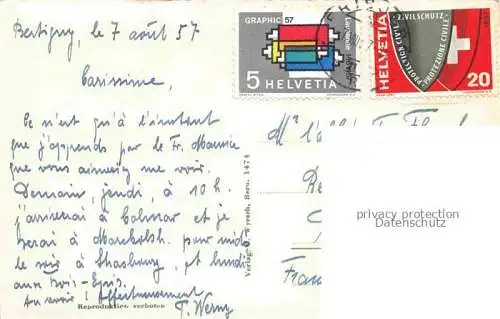 Bertigny, le 7 août 57
Carissime,
Ce n'est qu'à l'instant
que j'apprends par le Fr. Maurice
que vous aimeriez me voir.
Demain, jeudi, à 10 h.
j'arriverai à Colmar et je
serai à Marckolsh. pour midi
le soir à Strasbourg, et lundi
aux Trois-Epis.
Au revoir ! Affectueusement
Reproduktion verboten
Verlag
Bern. 1474
GRAPHIC 57
5 HELVETIA
HELVETIA
ZIVILSCHUTZ
PROTECTION CIVILE
PROTEZIONE CIVILE
20
M. l'abbé
Fran
privacy protection
Datenschutz